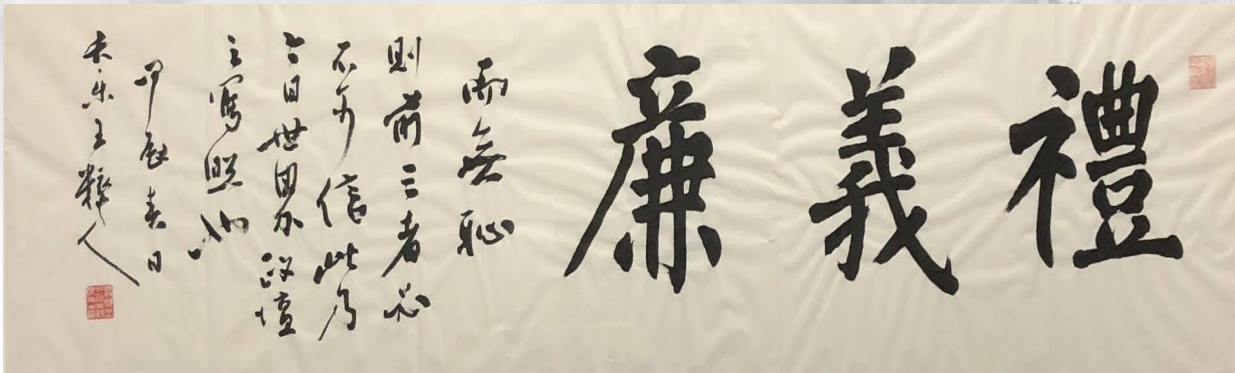 禮義廉
而無恥
則前三者必
不可信此乃
今日世界政壇
之寫照也
甲辰春日
王人